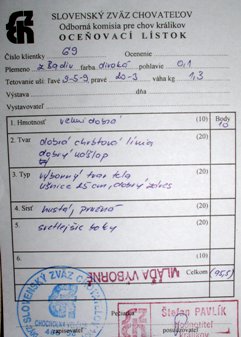 SLOVENSKÝ ZVÄZ CHOVATEĽOV
Odborná komisia pre chov králikov
OCEŇOVACÍ LÍSTOK
Číslo klientky 69 Ocenenie
Plemeno farba divoká pohlavie 0,1
Tetovanie uší: ľavé 9-5-9 pravé 20-3 váha kg 1,3
Výstava dňa
Vystavovateľ
Body
1. Hmotnosť veľmi dobrá (10) 10
2. Tvar dobrá chrbtová línia (20)
dobrý nášľap
3. Typ výborný tvar tela (20)
ušnice
4. Srsť hustá, pružná (20)
5. svetlejšie boky (20)
6. (10)
MLÁĎA VÝBORNÉ
Celkom
SLOVENSKÝ ZVÄZ CHOVATEĽOV
Pečiatka
Štefan PAVLÍK
zapisovateľ posudzovateľ